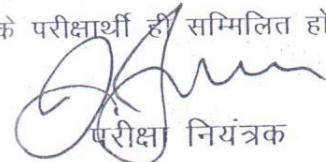 के परीक्षार्थी ही सम्मिलित हो
परीक्षा नियंत्रक